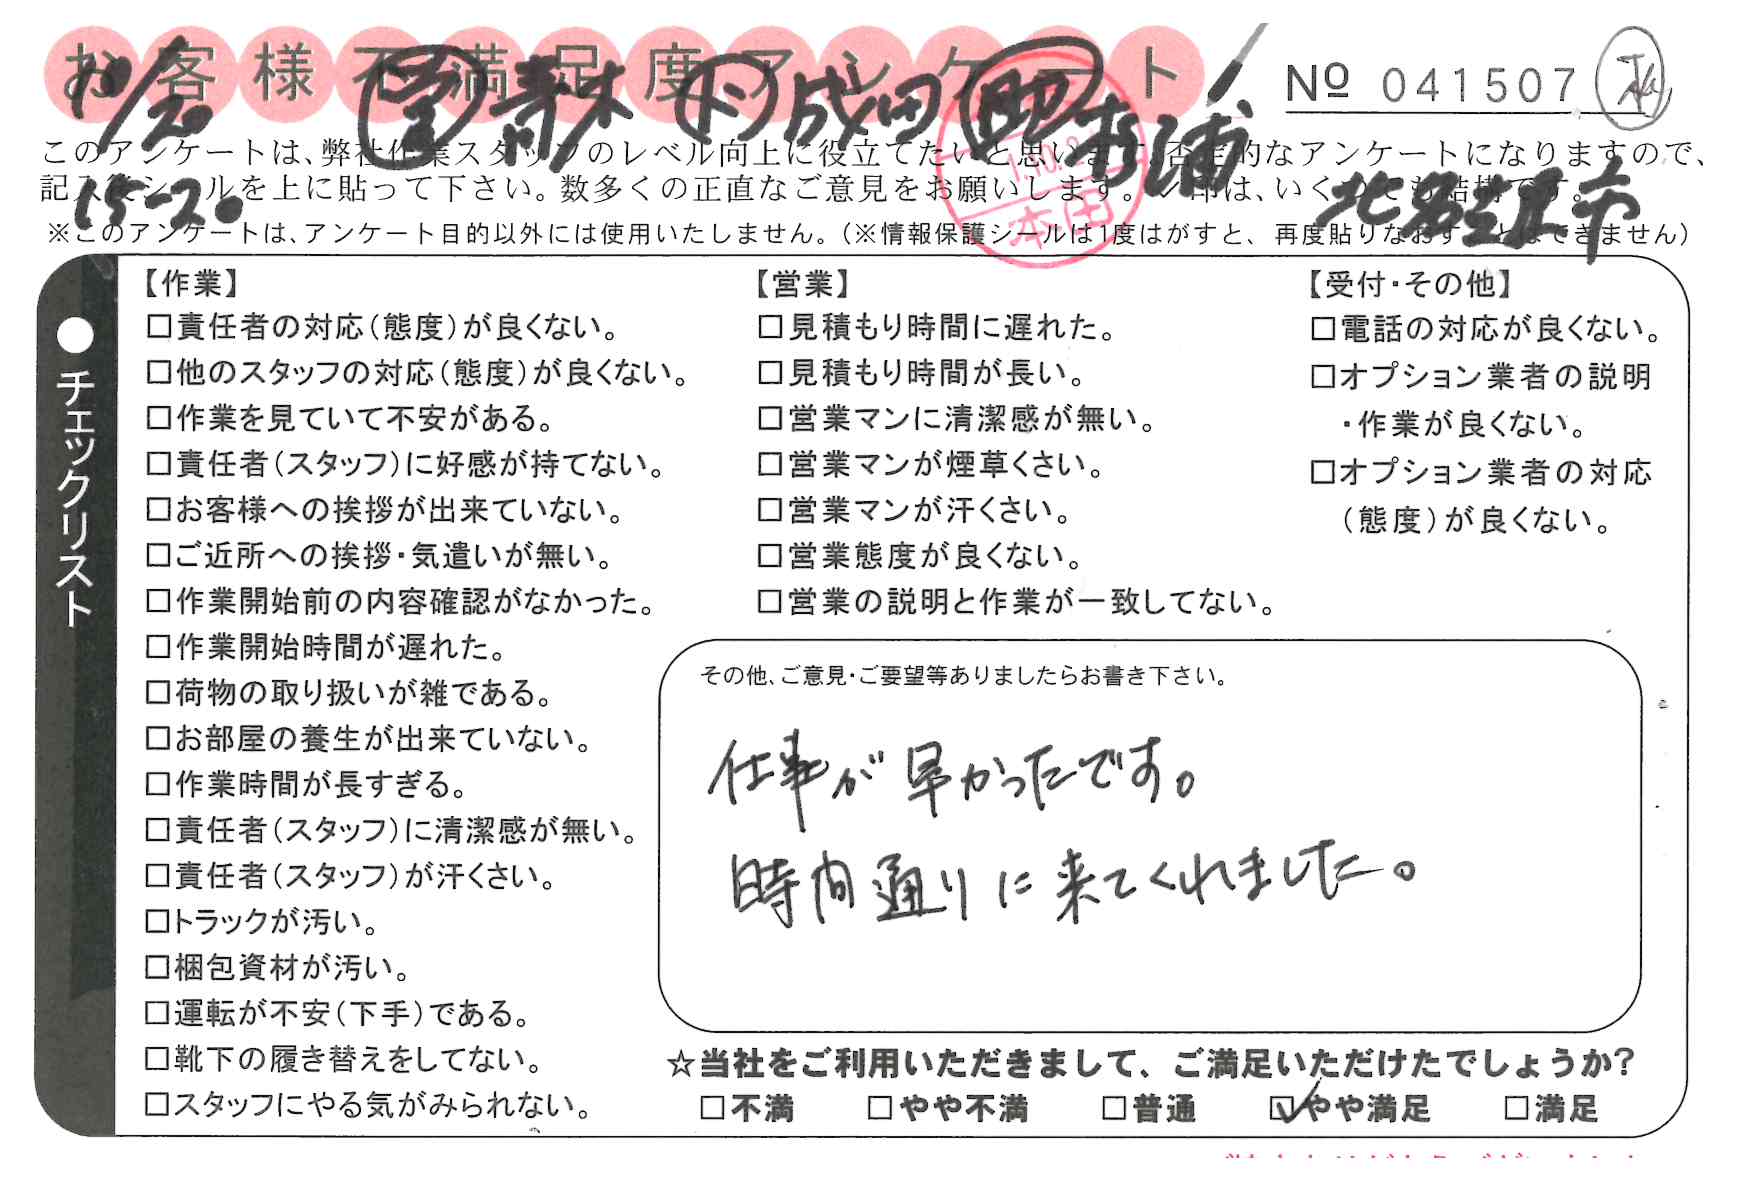 お客様不満足度アンケート
Nº 041507
10/20 営 青木 ト 成田 助 杉浦
このアンケートは、弊社作業スタッフのレベル向上に役立てたいと思います。否定的なアンケートになりますので、
記入後シールを上に貼って下さい。数多くの正直なご意見をお願いします。✓印は、いくつでも結構です。
15-20 北名古屋市
本田
※このアンケートは、アンケート目的以外には使用いたしません。（※情報保護シールは1度はがすと、再度貼りなおすことはできません）
●チェックリスト
【作業】
□責任者の対応（態度）が良くない。
□他のスタッフの対応（態度）が良くない。
□作業を見ていて不安がある。
□責任者（スタッフ）に好感が持てない。
□お客様への挨拶が出来ていない。
□ご近所への挨拶・気遣いが無い。
□作業開始前の内容確認がなかった。
□作業開始時間が遅れた。
□荷物の取り扱いが雑である。
□お部屋の養生が出来ていない。
□作業時間が長すぎる。
□責任者（スタッフ）に清潔感が無い。
□責任者（スタッフ）が汗くさい。
□トラックが汚い。
□梱包資材が汚い。
□運転が不安（下手）である。
□靴下の履き替えをしてない。
□スタッフにやる気がみられない。
【営業】
□見積もり時間に遅れた。
□見積もり時間が長い。
□営業マンに清潔感が無い。
□営業マンが煙草くさい。
□営業マンが汗くさい。
□営業態度が良くない。
□営業の説明と作業が一致してない。
【受付・その他】
□電話の対応が良くない。
□オプション業者の説明
・作業が良くない。
□オプション業者の対応
（態度）が良くない。
その他、ご意見・ご要望等ありましたらお書き下さい。
仕事が早かったです。
時間通りに来てくれました。
☆当社をご利用いただきまして、ご満足いただけたでしょうか?
□不満 □やや不満 □普通 ☑やや満足 □満足